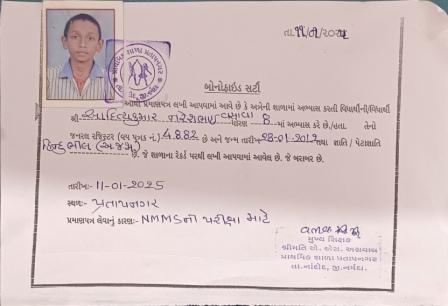 તા. ૧૧/૦૧/૨૦૨૫
પ્રાથમિક શાળા પ્રતાપનગર
બોનોફાઇડ સર્ટી
આથી પ્રમાણપત્ર લખી આપવામાં આવે છે કે અત્રેની શાળામાં અભ્યાસ કરતી વિદ્યાર્થીની/વિદ્યાર્થી
શ્રી આદિત્યકુમાર નરેશભાઈ વસાવા ધોરણ 8 માં અભ્યાસ કરે છે./હતા. તેનો
જનરલ રજિસ્ટર (વય પત્રક નં.) 4882 છે અને જન્મ તારીખ 28-01-2012 તથા જ્ઞાતિ / પેટાજ્ઞાતિ
હિન્દુ ભીલ છે. જે શાળાના રેકર્ડ પરથી લખી આપવામાં આવેલ છે. જે બરાબર છે.
તારીખઃ- 11-01-2025
સ્થળઃ- પ્રતાપનગર
પ્રમાણપત્ર લેવાનું કારણઃ- NMMSની પરીક્ષા માટે
મુખ્ય શિક્ષક
શ્રીમતિ એ. એસ. અગ્રવાલ
પ્રાથમિક શાળા પ્રતાપનગર
તા.નાંદોદ, જી.નર્મદા.